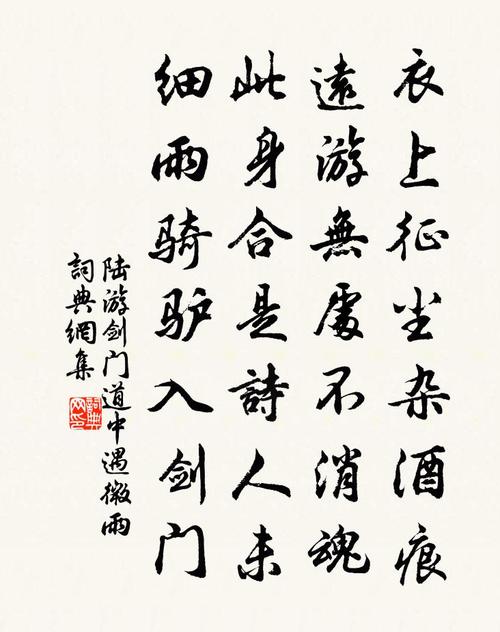 衣上征尘杂酒痕
遠游無處不消魂
此身合是詩人未
细雨骑驴入剑门
陆游剑门道中遇微雨
詞典網集